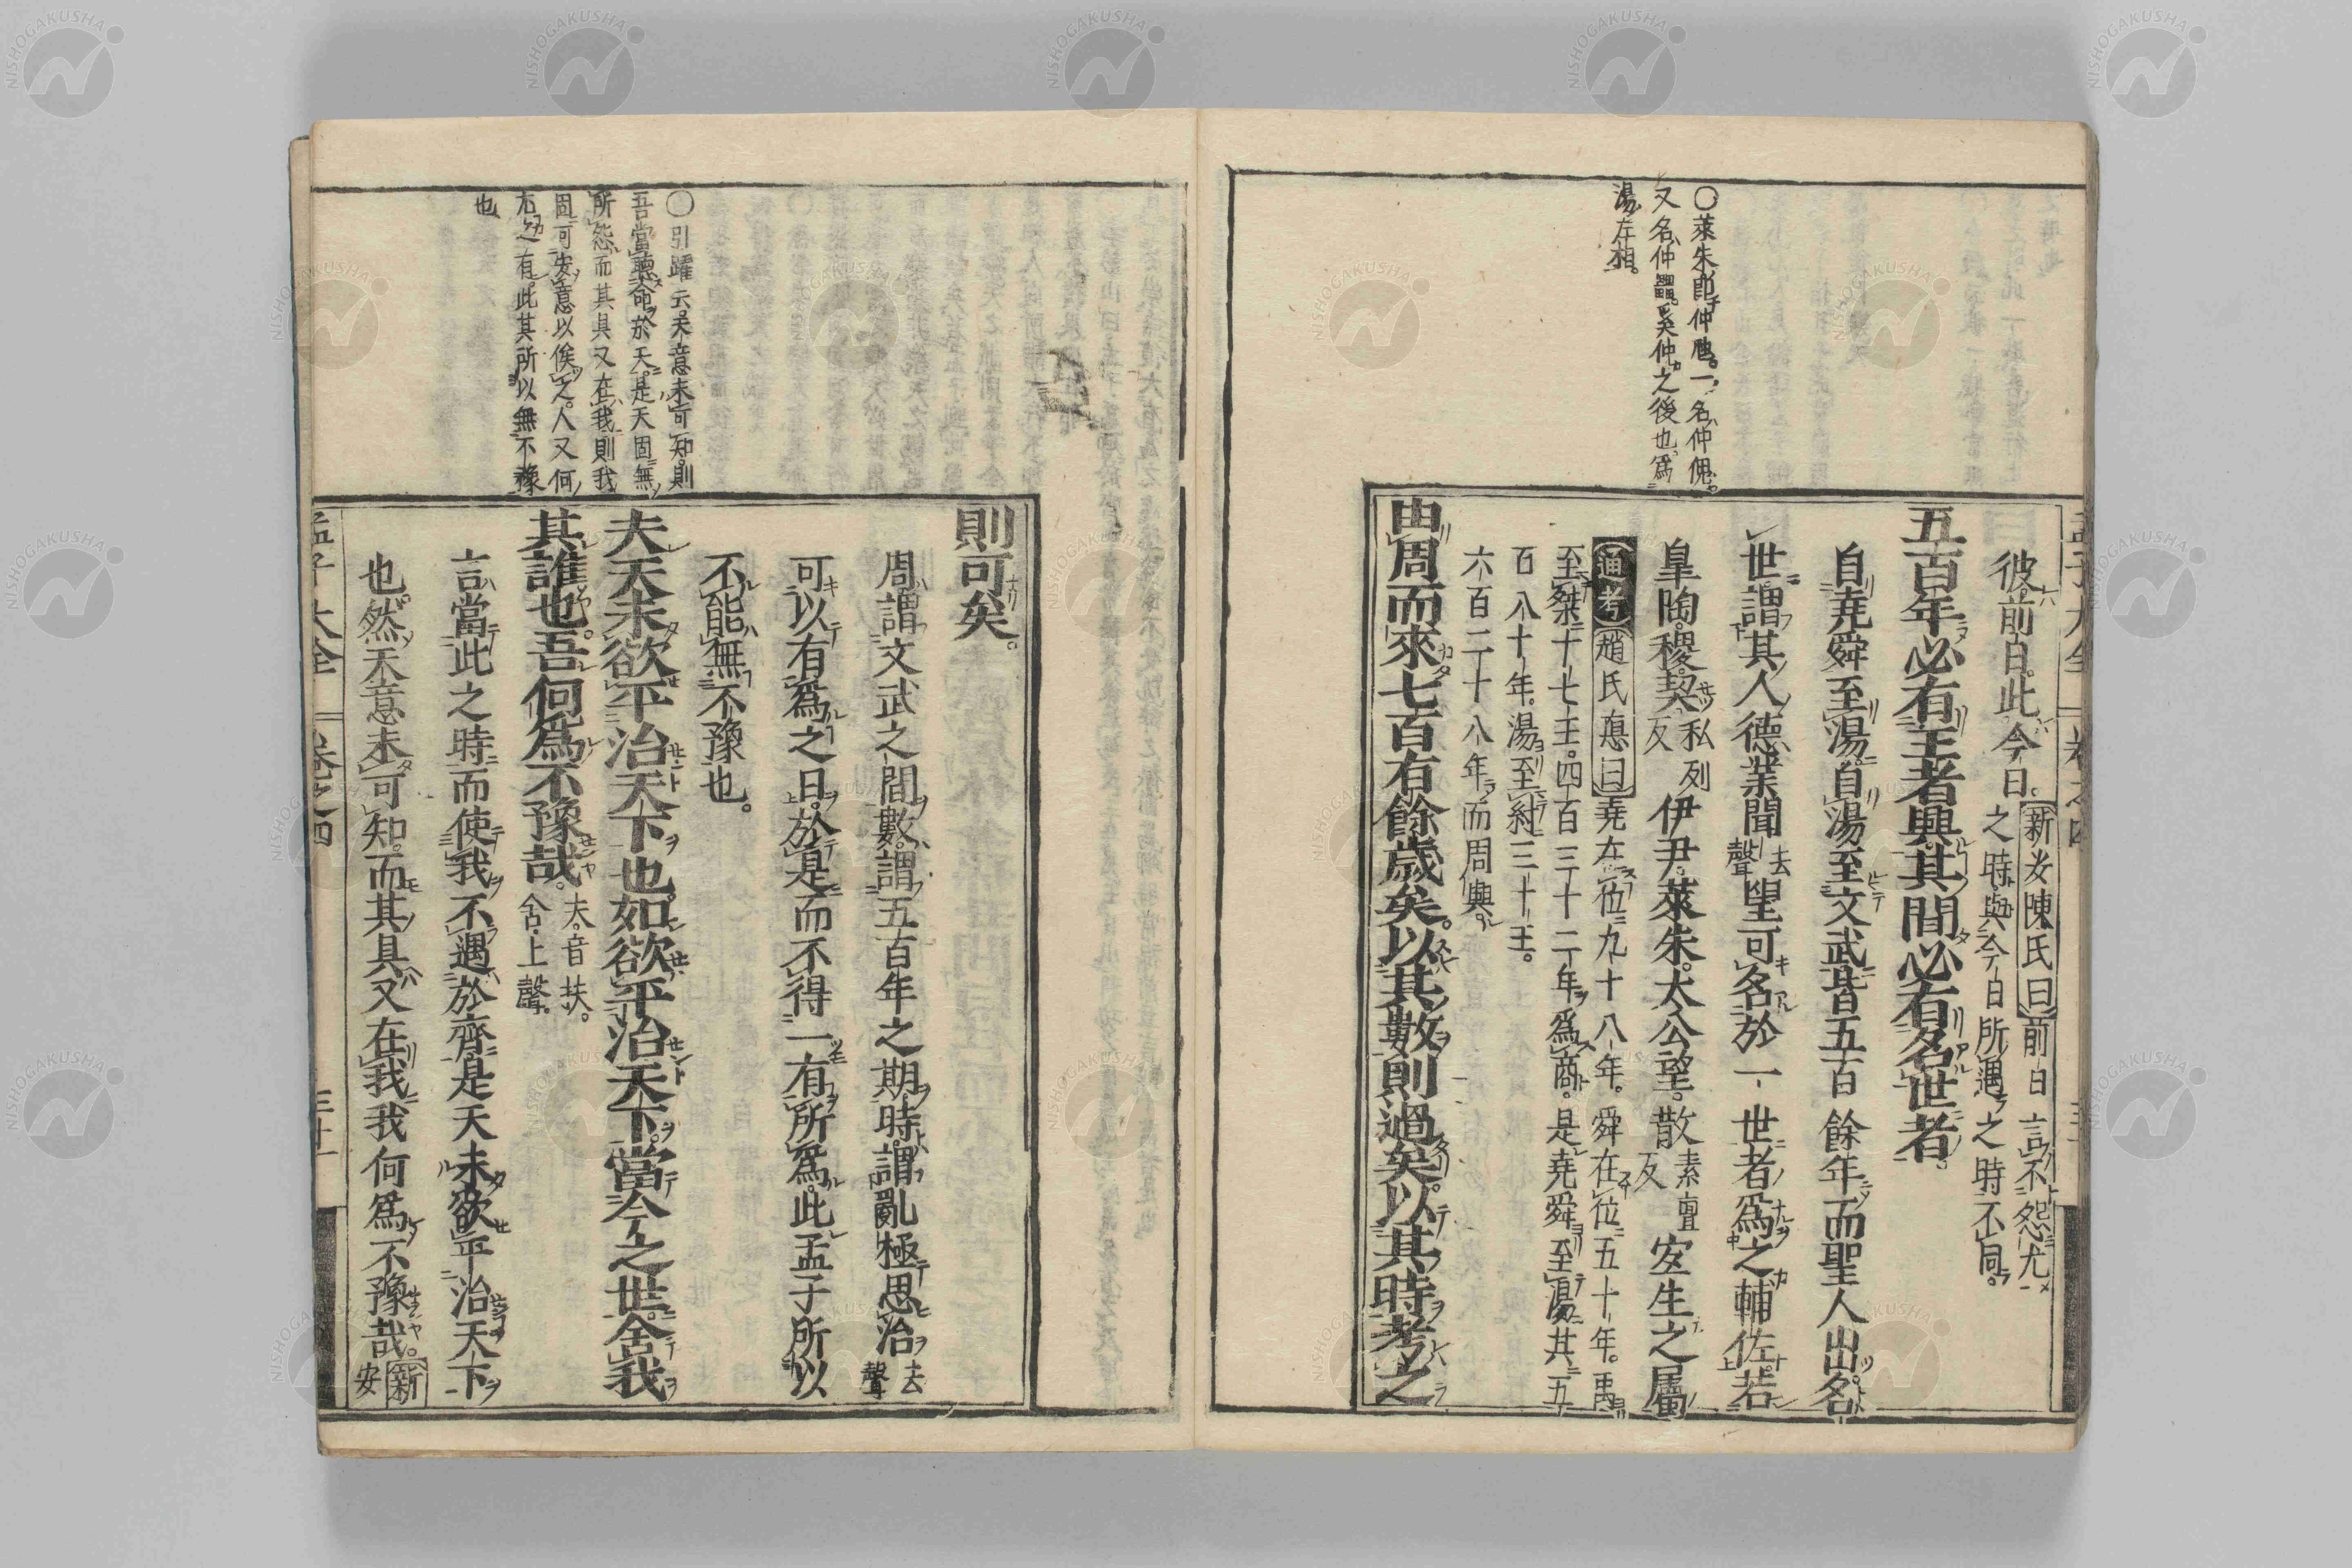 〇萊朱即仲虺一名仲傀
又名仲䖝奚仲之後也爲
湯左相
彼前日此今日新安陳氏曰前日言不怨尤
之時與今日所遇之時不同
五百年必有王者興其間必有名世者
自堯舜至湯自湯至文武皆五百餘年而聖人出名
世謂其人德業聞去聲望可名於一世者爲之輔佐若
皐陶稷契私列反伊尹萊朱太公望散素亶反宜生之屬
通考趙氏悳曰堯在位九十八年舜在位五十年禹
至桀十七王四百三十二年爲商是堯舜至湯其五
百八十年湯至紂三十王
六百二十八年而周興
由周而來七百有餘歲矣以其數則過矣以其時考之
〇引躍云天意未可知則
吾當聽命於天是天固無
所怨而其具又在我則我
固可安意以俟之人又何
尤之有此其所以無不豫
也
則可矣
周謂文武之間數謂五百年之期時謂亂極思治去聲
可以有爲之日於是而不得一有所爲此孟子所以
不能無不豫也
夫天未欲平治天下也如欲平治天下當今之世舍我
其誰也吾何爲不豫哉夫音扶舍上聲
言當此之時而使我不遇於齊是天未欲平治天下
也然天意未可知而其具又在我我何爲不豫哉新安
孟子大全 卷之四 三十一